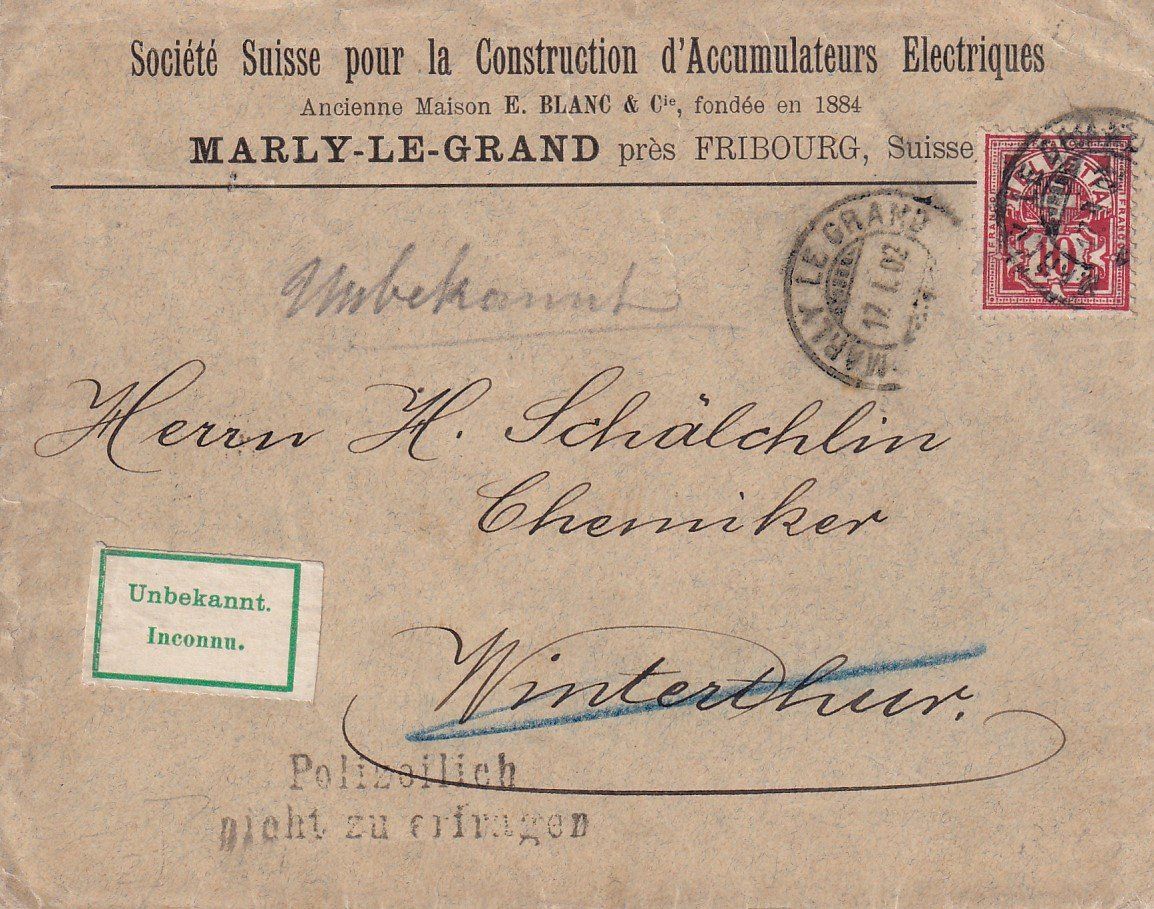 Société Suisse pour la Construction d'Accumulateurs Electriques
Ancienne Maison E. BLANC & Cie, fondée en 1884
MARLY-LE-GRAND près FRIBOURG, Suisse
HELVETIA
FRANCO
FRANCO
10
MARLY LE GRAND
17.I.02
Unbekannt
Herrn H. Schälchlin
Chemiker
Unbekannt.
Inconnu.
Winterthur.
Polizeilich
nicht zu erfragen